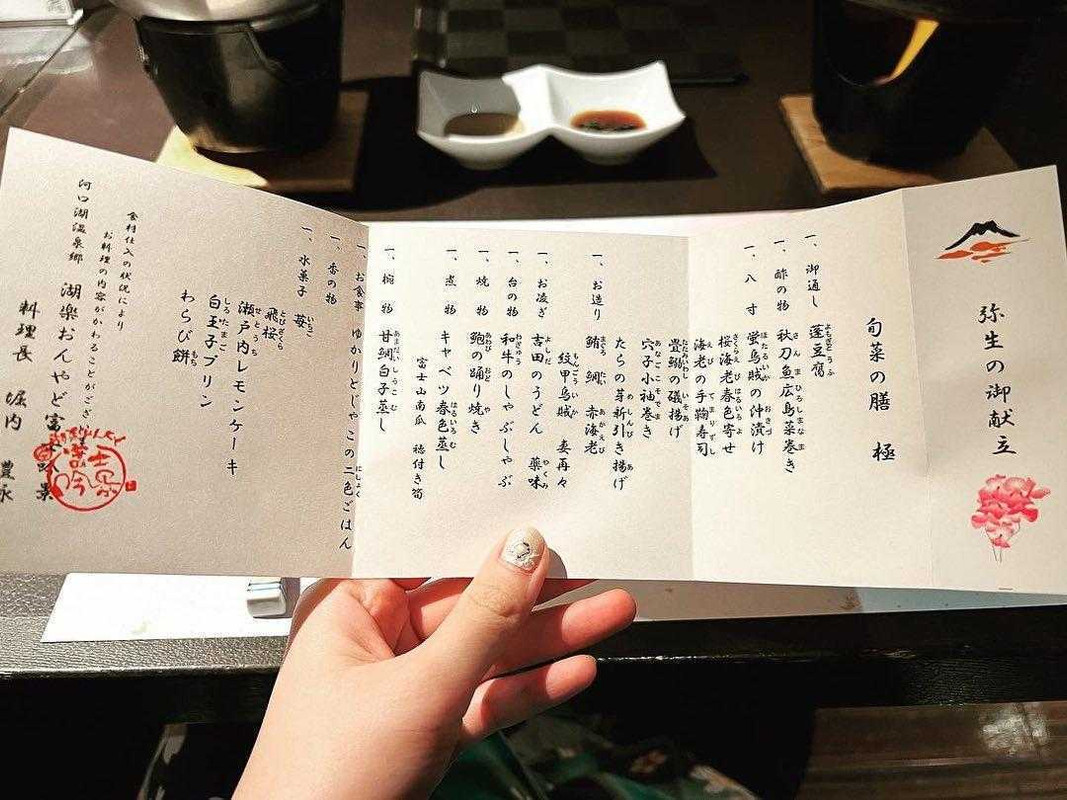 弥生の御献立
旬菜の膳　極
一、御通し　蓬豆腐
一、酢の物　秋刀魚広島菜巻き
一、八寸　蛍烏賊の沖漬け
桜海老春色寄せ
海老の手鞠寿司
畳鰯の磯揚げ
穴子小袖巻き
たらの芽新引き揚げ
一、お造り　鮪　鯛　赤海老
紋甲烏賊　妻再々
一、お凌ぎ　吉田のうどん　薬味
一、台の物　和牛のしゃぶしゃぶ
一、焼物　鮑の踊り焼き
一、煮物　キャベツ春色蒸し
富士山南瓜　穂付き筍
一、椀物　甘鯛白子蒸し
一、お食事　ゆかりとじゃこの二色ごはん
一、香の物
一、水菓子　苺
飛桜
瀬戸内レモンケーキ
白玉子プリン
わらび餅
食材仕入の状況により
お料理の内容がかわることがござい
河口湖温泉郷　湖楽おんやど富士吟景
料理長　堀内